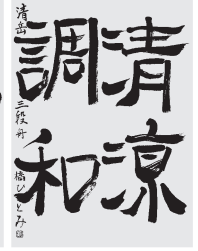 清涼
調和
清岳 三段 舟橋ひとみ